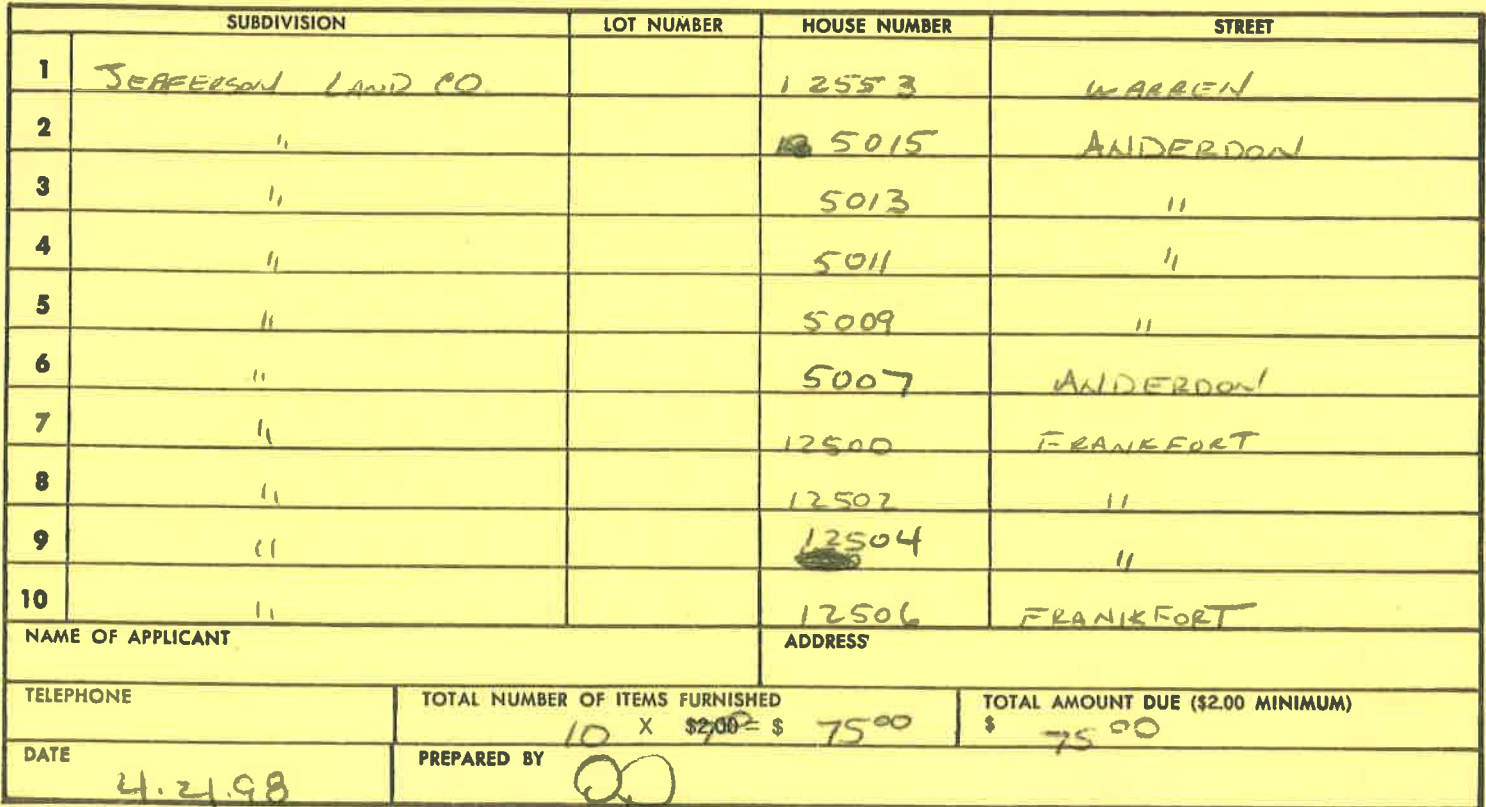 SUBDIVISION LOT NUMBER HOUSE NUMBER STREET
1 JEFFERSON LAND CO. 12553 WARREN
2 " 5015 ANDERDON
3 " 5013 "
4 " 5011 "
5 " 5009 "
6 " 5007 ANDERDON
7 " 12500 FRANKFORT
8 " 12502 "
9 " 12504 "
10 " 12506 FRANKFORT
NAME OF APPLICANT ADDRESS
TELEPHONE TOTAL NUMBER OF ITEMS FURNISHED TOTAL AMOUNT DUE ($2.00 MINIMUM)
10 X $2.00 = $ 75 00 $ 75 00
DATE PREPARED BY
4.21.98